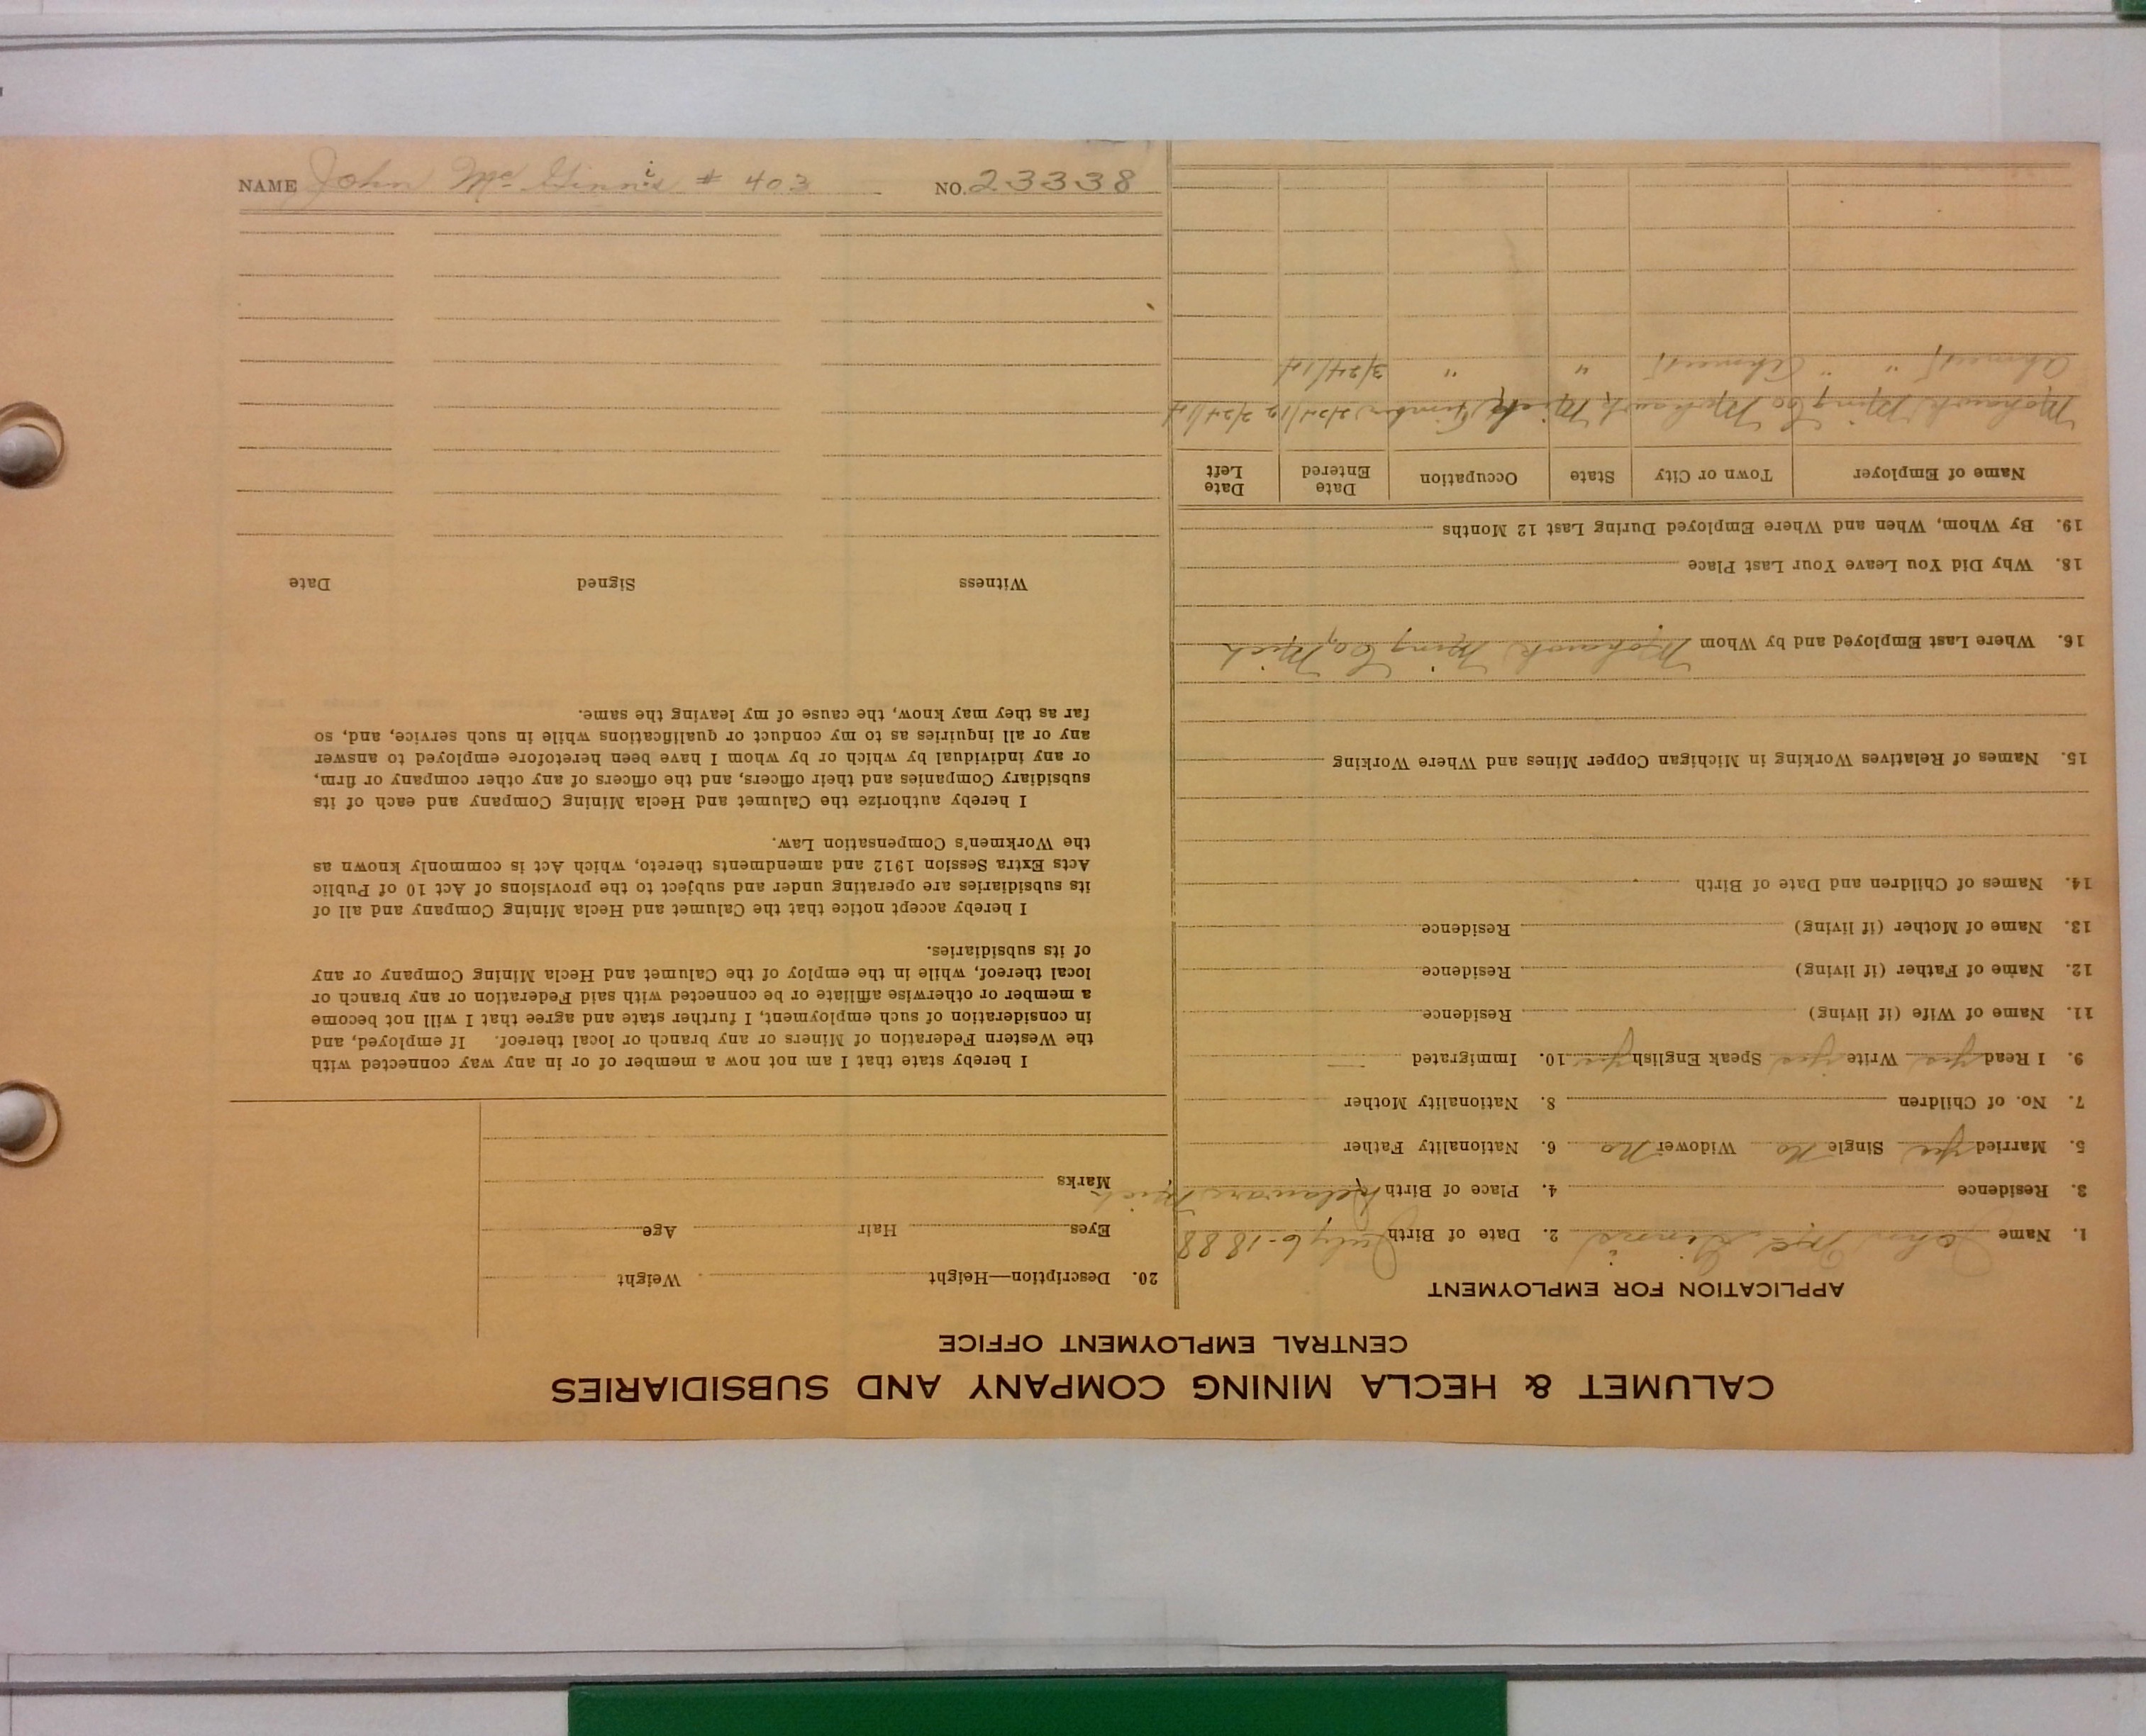 CALUMET & HECLA MINING COMPANY AND SUBSIDIARIES
CENTRAL EMPLOYMENT OFFICE
APPLICATION FOR EMPLOYMENT
1. Name John McGinnis 2. Date of Birth July 6-1888
3. Residence 4. Place of Birth Delaware Mich
5. Married yes Single No Widower No 6. Nationality Father
7. No. of Children 8. Nationality Mother
9. I Read yes Write yes Speak English yes 10. Immigrated
11. Name of Wife (if living) Residence
12. Name of Father (if living) Residence
13. Name of Mother (if living) Residence
14. Names of Children and Date of Birth
15. Names of Relatives Working in Michigan Copper Mines and Where Working
16. Where Last Employed and by Whom Mohawk Ming Co, Mich
18. Why Did You Leave Your Last Place
19. By Whom, When and Where Employed During Last 12 Months
Name of Employer Town or City State Occupation Date Entered Date Left
Mohawk Ming Co Mohawk Mich
Ahmeek " " Ahmeek " "
20. Description—Height Weight
Eyes Hair Age
Marks
I hereby state that I am not now a member of or in any way connected with
the Western Federation of Miners or any branch or local thereof. If employed, and
in consideration of such employment, I further state and agree that I will not become
a member or otherwise affiliate or be connected with said Federation or any branch or
local thereof, while in the employ of the Calumet and Hecla Mining Company or any
of its subsidiaries.
I hereby accept notice that the Calumet and Hecla Mining Company and all of
its subsidiaries are operating under and subject to the provisions of Act 10 of Public
Acts Extra Session 1912 and amendments thereto, which Act is commonly known as
the Workmen's Compensation Law.
I hereby authorize the Calumet and Hecla Mining Company and each of its
subsidiary Companies and their officers, and the officers of any other company or firm,
or any individual by which or by whom I have been heretofore employed to answer
any or all inquiries as to my conduct or qualifications while in such service, and, so
far as they may know, the cause of my leaving the same.
Witness Signed Date
NAME John McGinnis # 403 NO. 23338